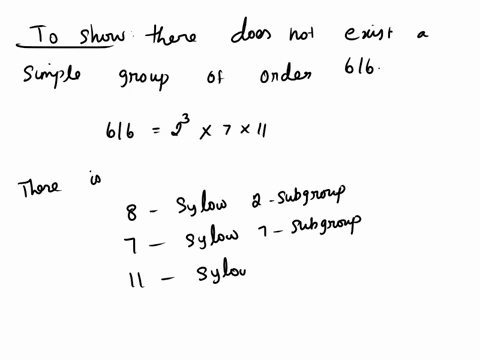 To show: there does not exist a
simple group of order 616.
616 = 2³ × 7 × 11
There is
8 - Sylow 2-subgroup
7 - Sylow 7-subgroup
11 - Sylou